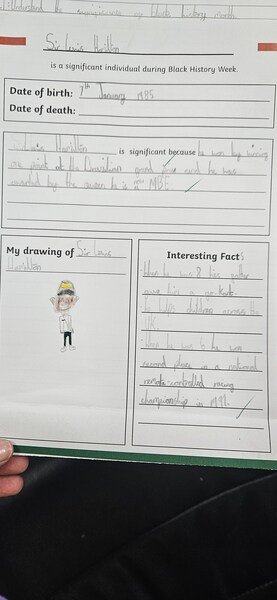 Understand the significance of black history month.
Sir Lewis Hamilton
is a significant individual during Black History Week.
Date of birth: 7th January 1985
Date of death:
Sir Lewis Hamilton is significant because he won by winning
one point at the Brazilian grand prix and he was
awarded by the queen he is a MBE
My drawing of Sir Lewis
Hamilton
Interesting Facts
When he was 8 his father
gave him a go-kart.
He helps children across the
UK.
When he was 6 he won
second place in a national
remote-controlled racing
championship in 1991.